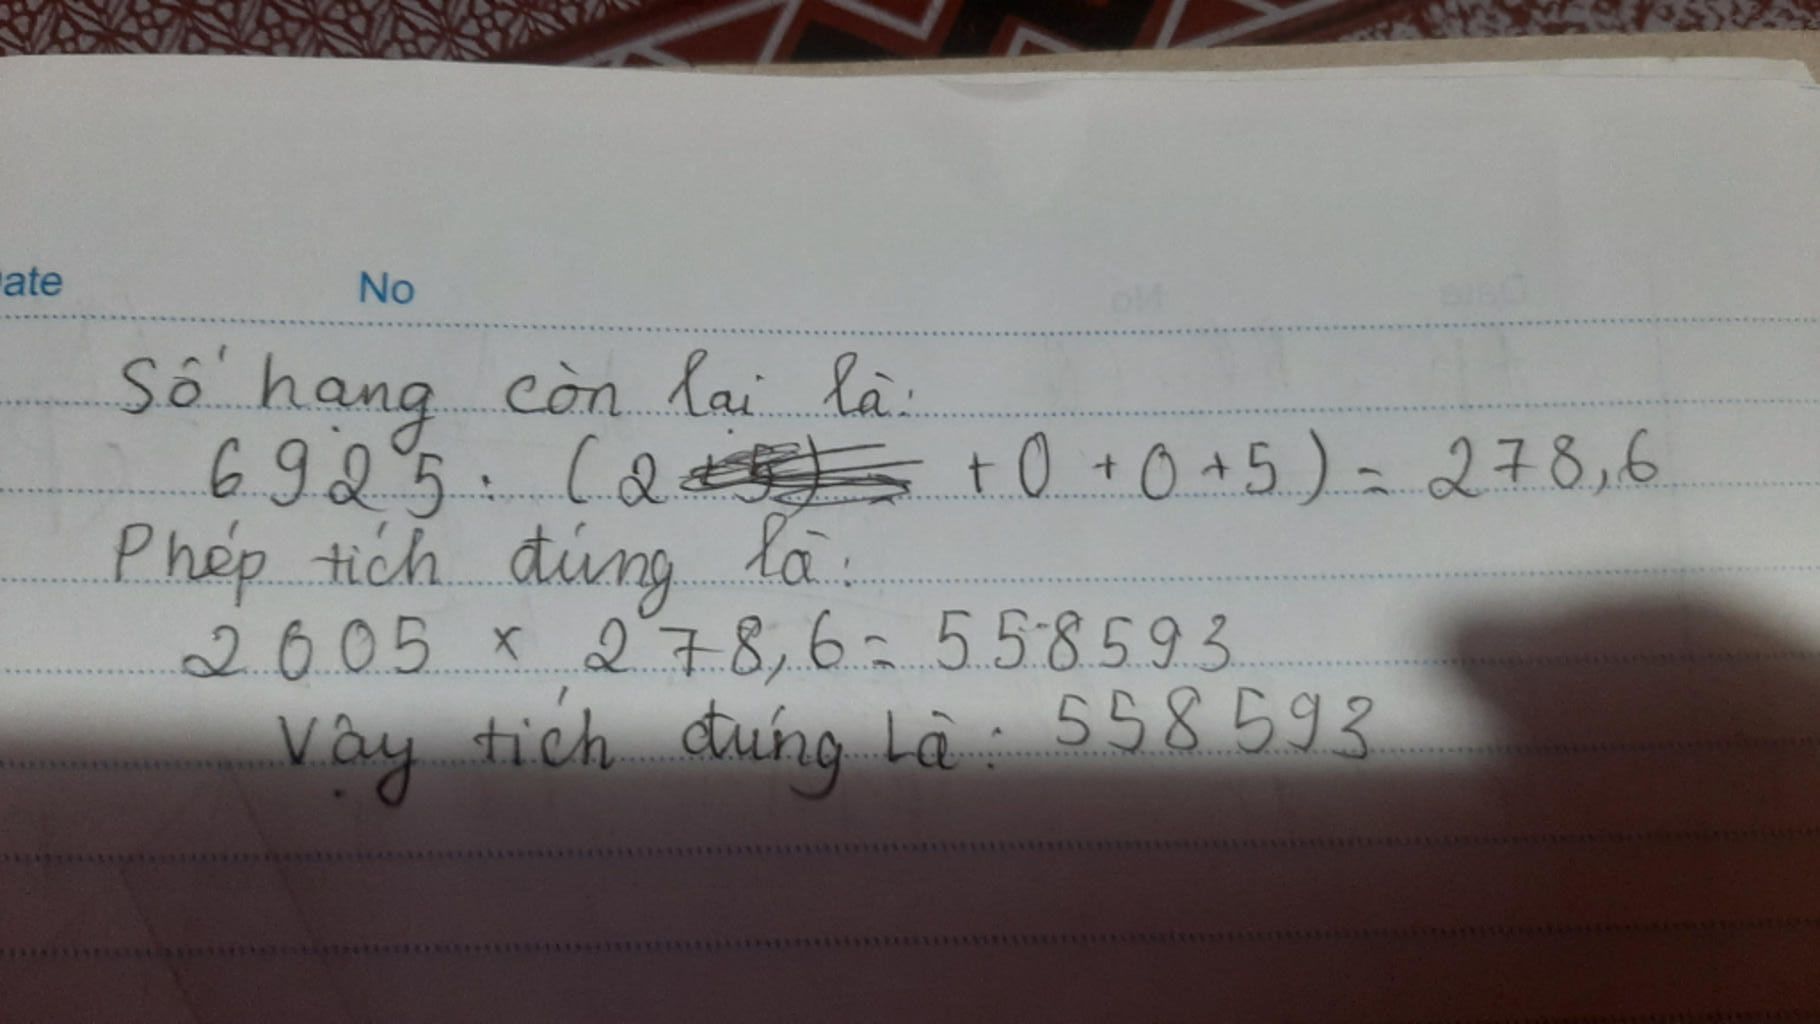 ate No
Số hạng còn lại là:
6925 : (2 + 0 + 0 + 5) = 278,6
Phép tích đúng là:
2005 x 278,6 = 558593
Vậy tích đúng Là: 558593